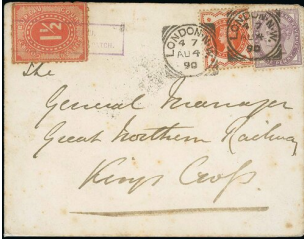 1½
LONDON.N.W
4 7
AU 4
90
LONDON.N.W
90
The
General Manager
Great Northern Railway
Kings Cross